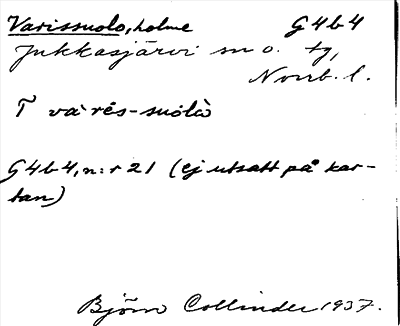 Varissuolo, holme G4b4
Jukkasjärvi sn o. tg,
Norrb. l.
T va`rẹs-suo̯lò
G4b4, n:r 21 (ej utsatt på kar-
tan)
Björn Collinder 1937.